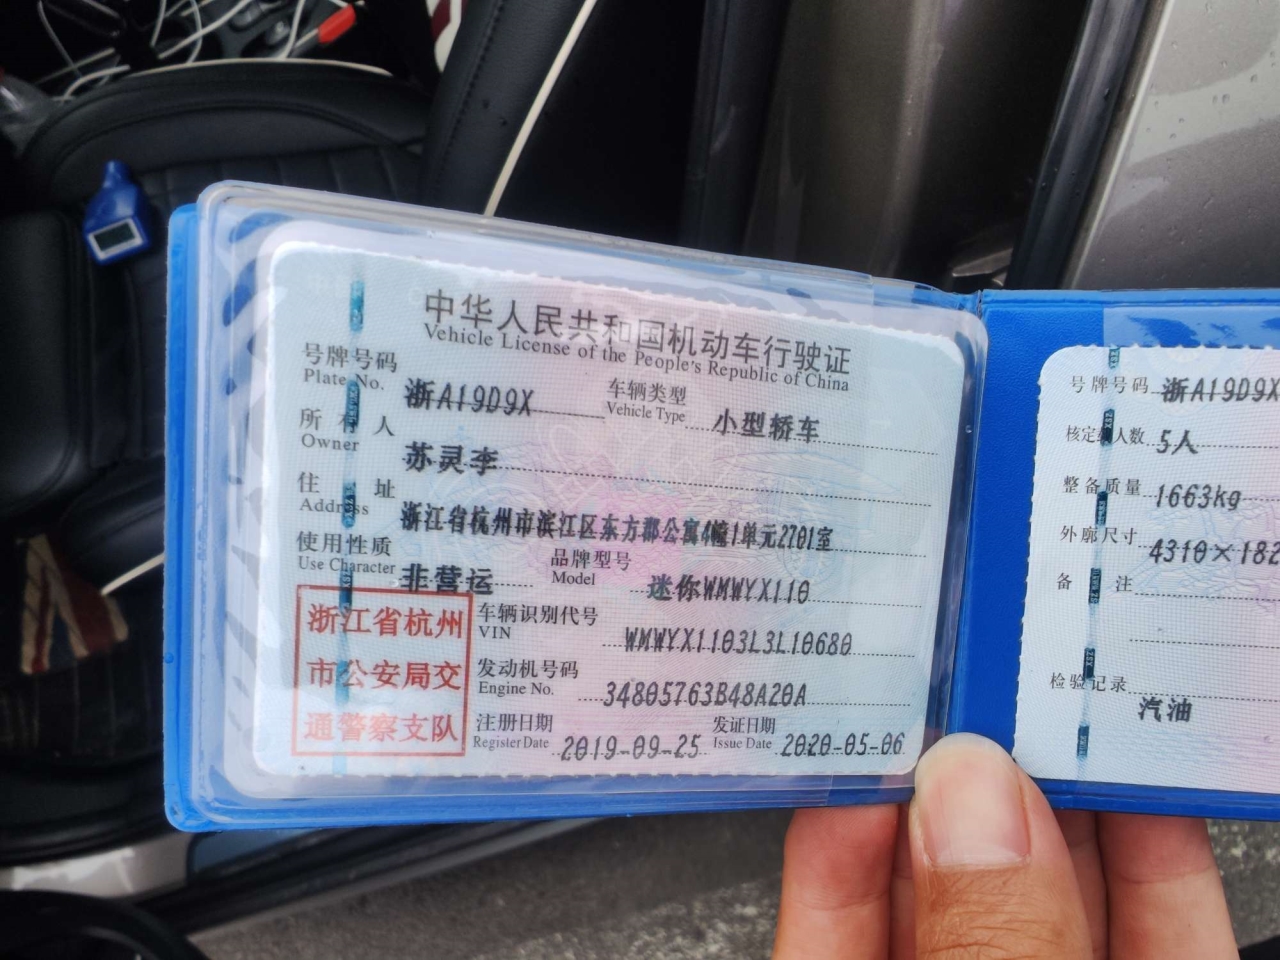 中华人民共和国机动车行驶证
Vehicle License of the People's Republic of China
号牌号码 浙A19D9X 车辆类型 小型轿车
Plate No. Vehicle Type
所有人 苏灵李
Owner
住址 浙江省杭州市滨江区东方郡公寓4幢1单元2701室
Address
使用性质 非营运 品牌型号 迷你WMWYX110
Use Character Model
浙江省杭州
市公安局交
通警察支队
车辆识别代号 WMWYX1103L3L10680
VIN
发动机号码 34805763B48A20A
Engine No.
注册日期 2019-09-25 发证日期 2020-05-06
Register Date Issue Date
号牌号码 浙A19D9X
核定载人数 5人
整备质量 1663kg
外廓尺寸 4310×182
备注
检验记录
汽油